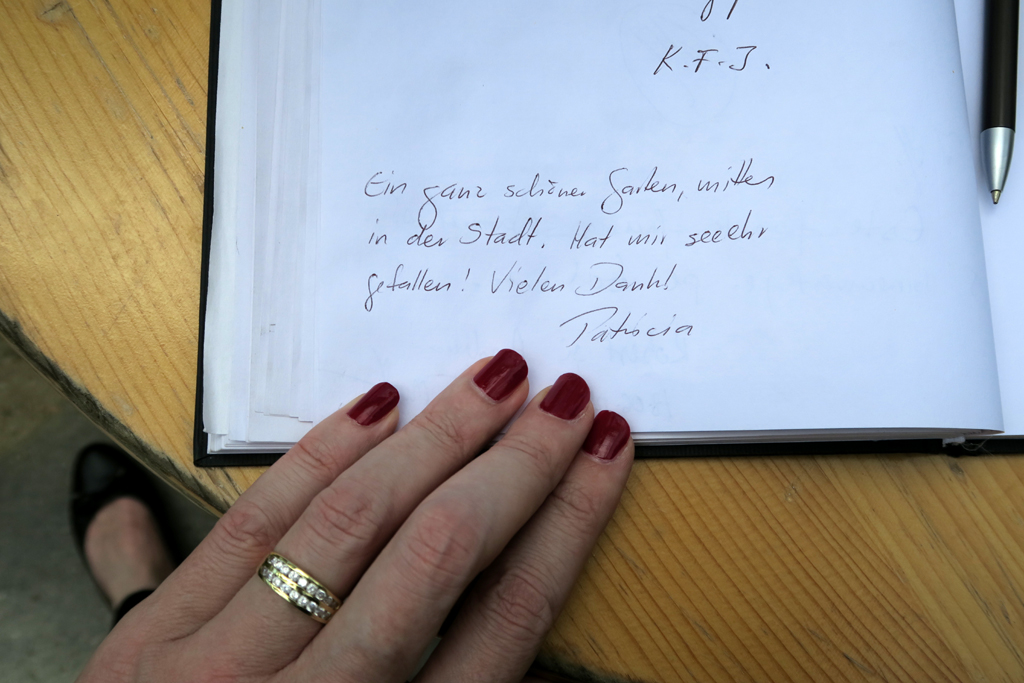 K.F.J.
Ein ganz schöner Garten, mitten
in der Stadt. Hat mir seeehr
gefallen! Vielen Dank!
Patricia